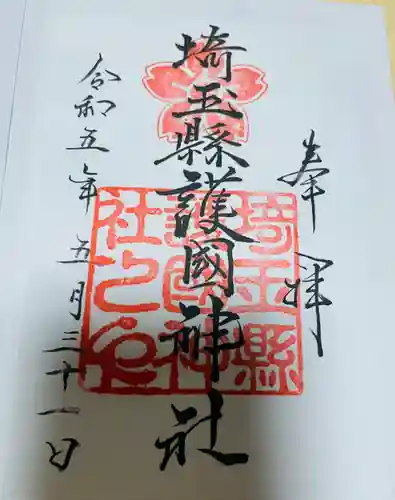 奉拝
埼玉縣護國神社
埼玉縣護國神社之印
令和五年五月三十一日